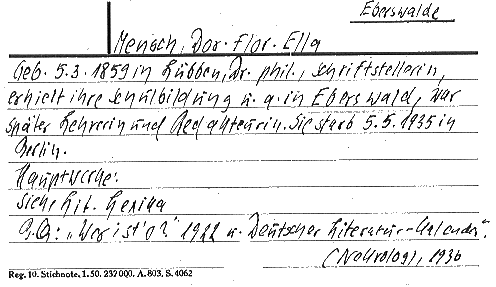 Eberswalde
Mensch, Dor. Flor. Ella
Geb. 5.3.1859 in Lübben, Dr. phil., Schriftstellerin,
erhielt ihre Schulbildung u. a. in Eberswald, war
später Lehrerin und Redakteurin. Sie starb 5.5.1935 in
Berlin.
Hauptwerke:
Siehe Lit. Lexika
"Wer ist's?" 1922 u. Deutscher Literatur-Kalender",
(Nekrolog), 1936
Reg. 10. Stichnote, 1. 50. 232 000. A. 803. S. 4062